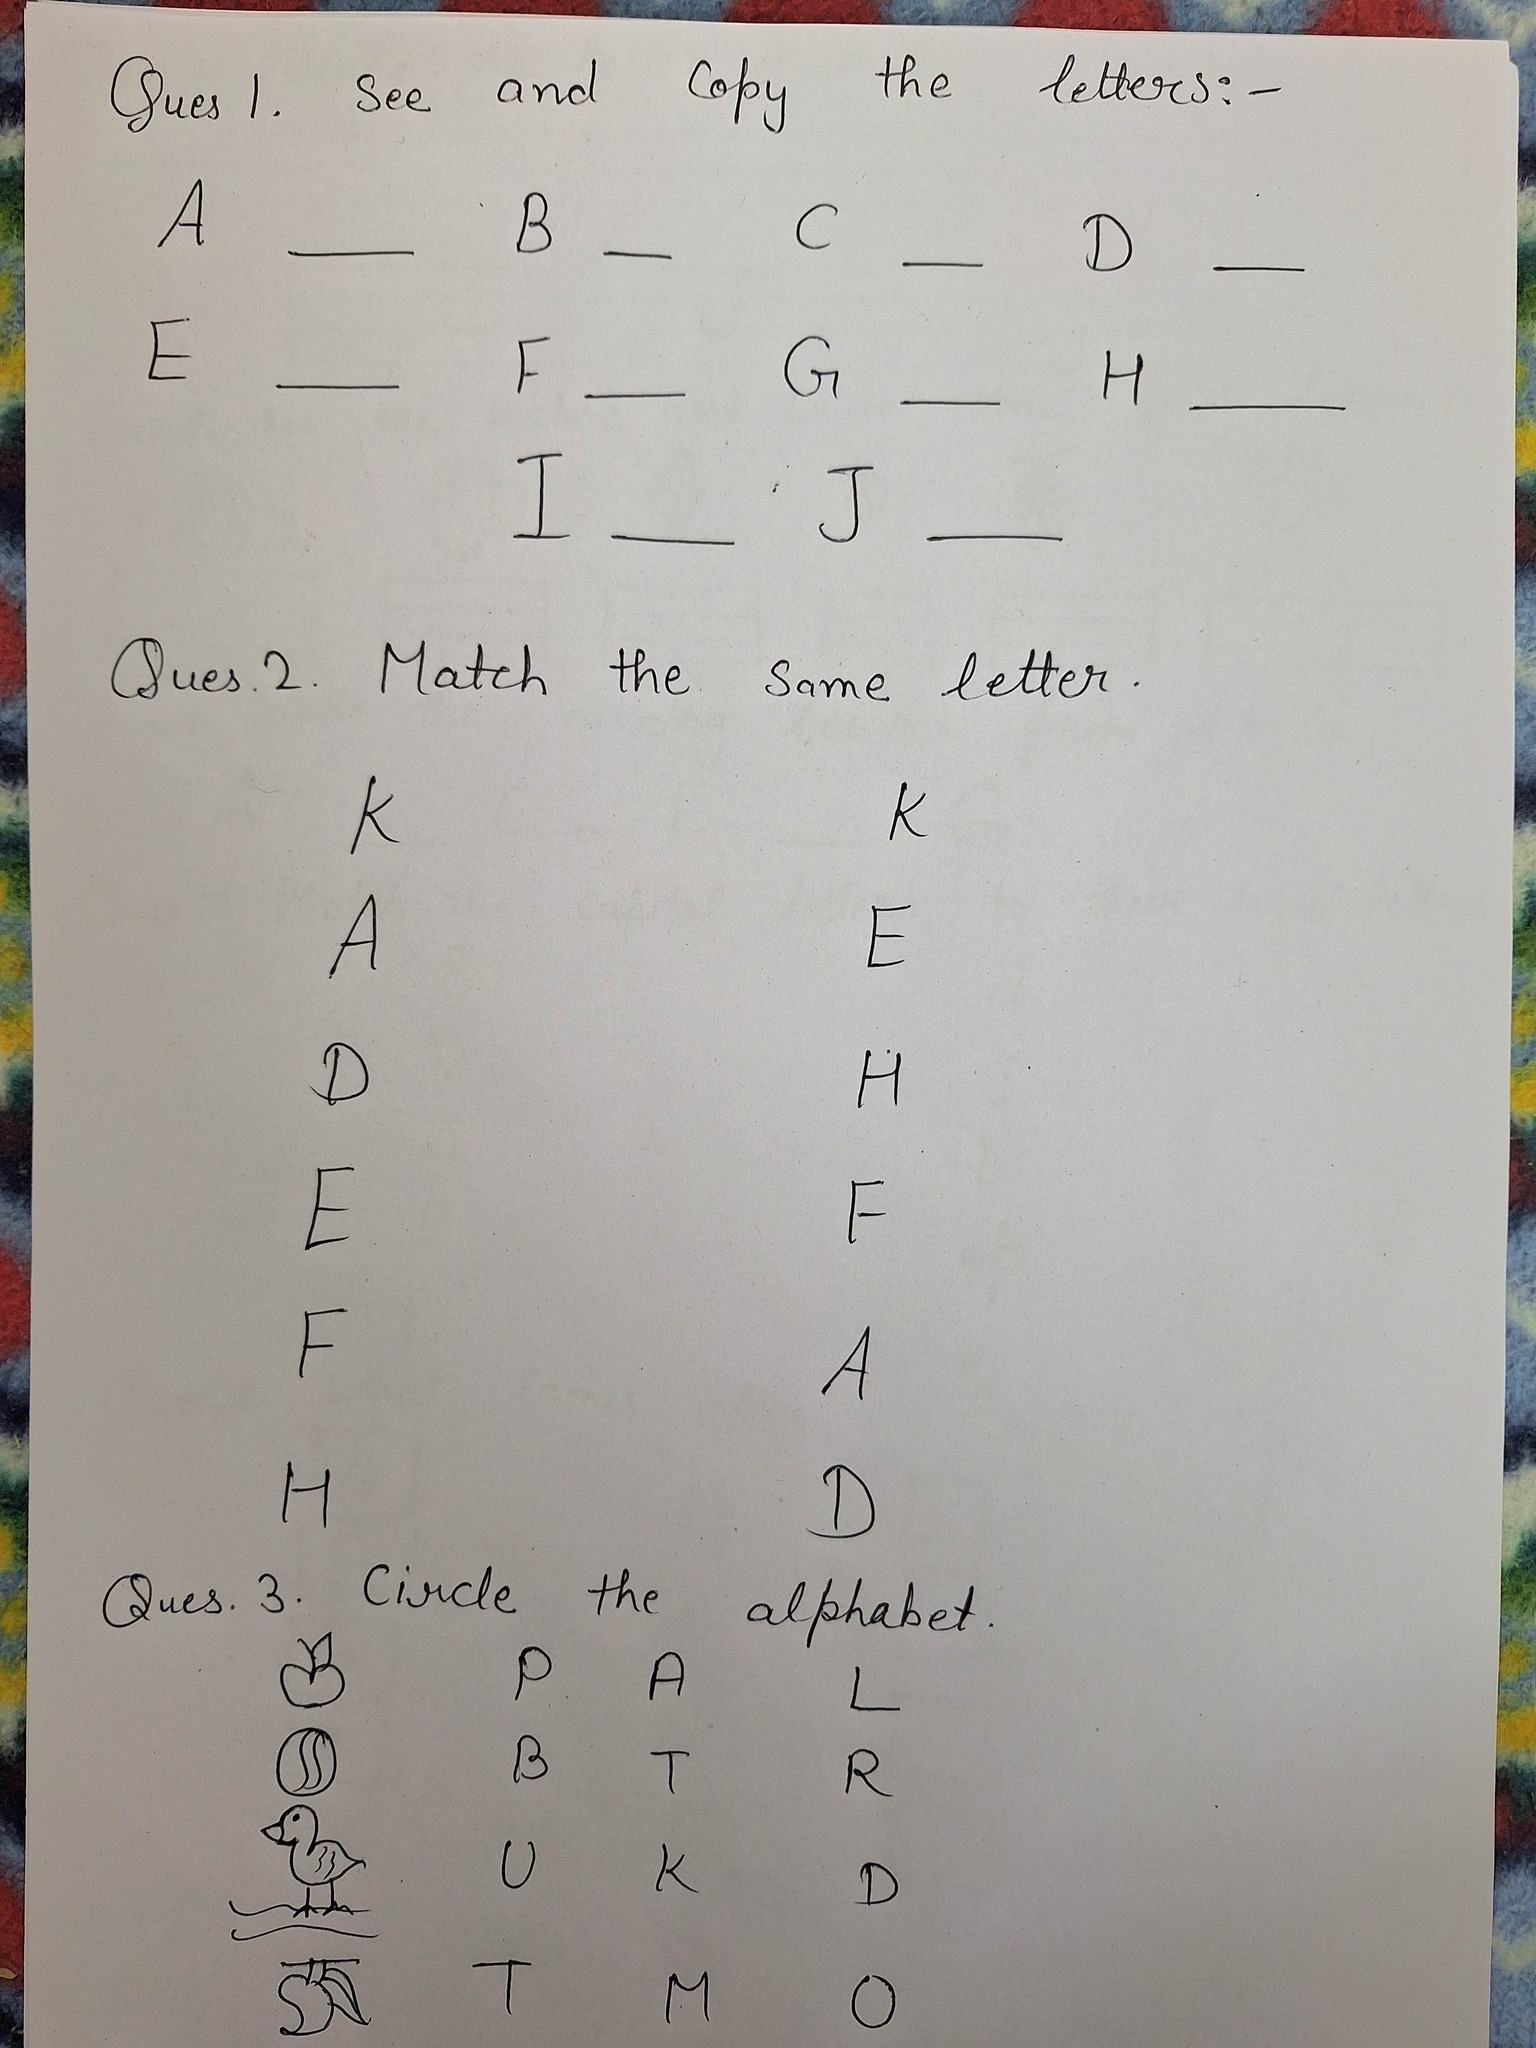 Ques 1. See and Copy the letters:-
A ___ B ___ C ___ D ___
E ___ F ___ G ___ H ___
I ___ J ___
Ques.2. Match the same letter.
K K
A E
D H
E F
F A
H D
Ques. 3. Circle the alphabet.
P A L
B T R
U K D
T M O